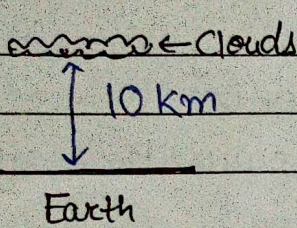 Clouds
10 km
Earth